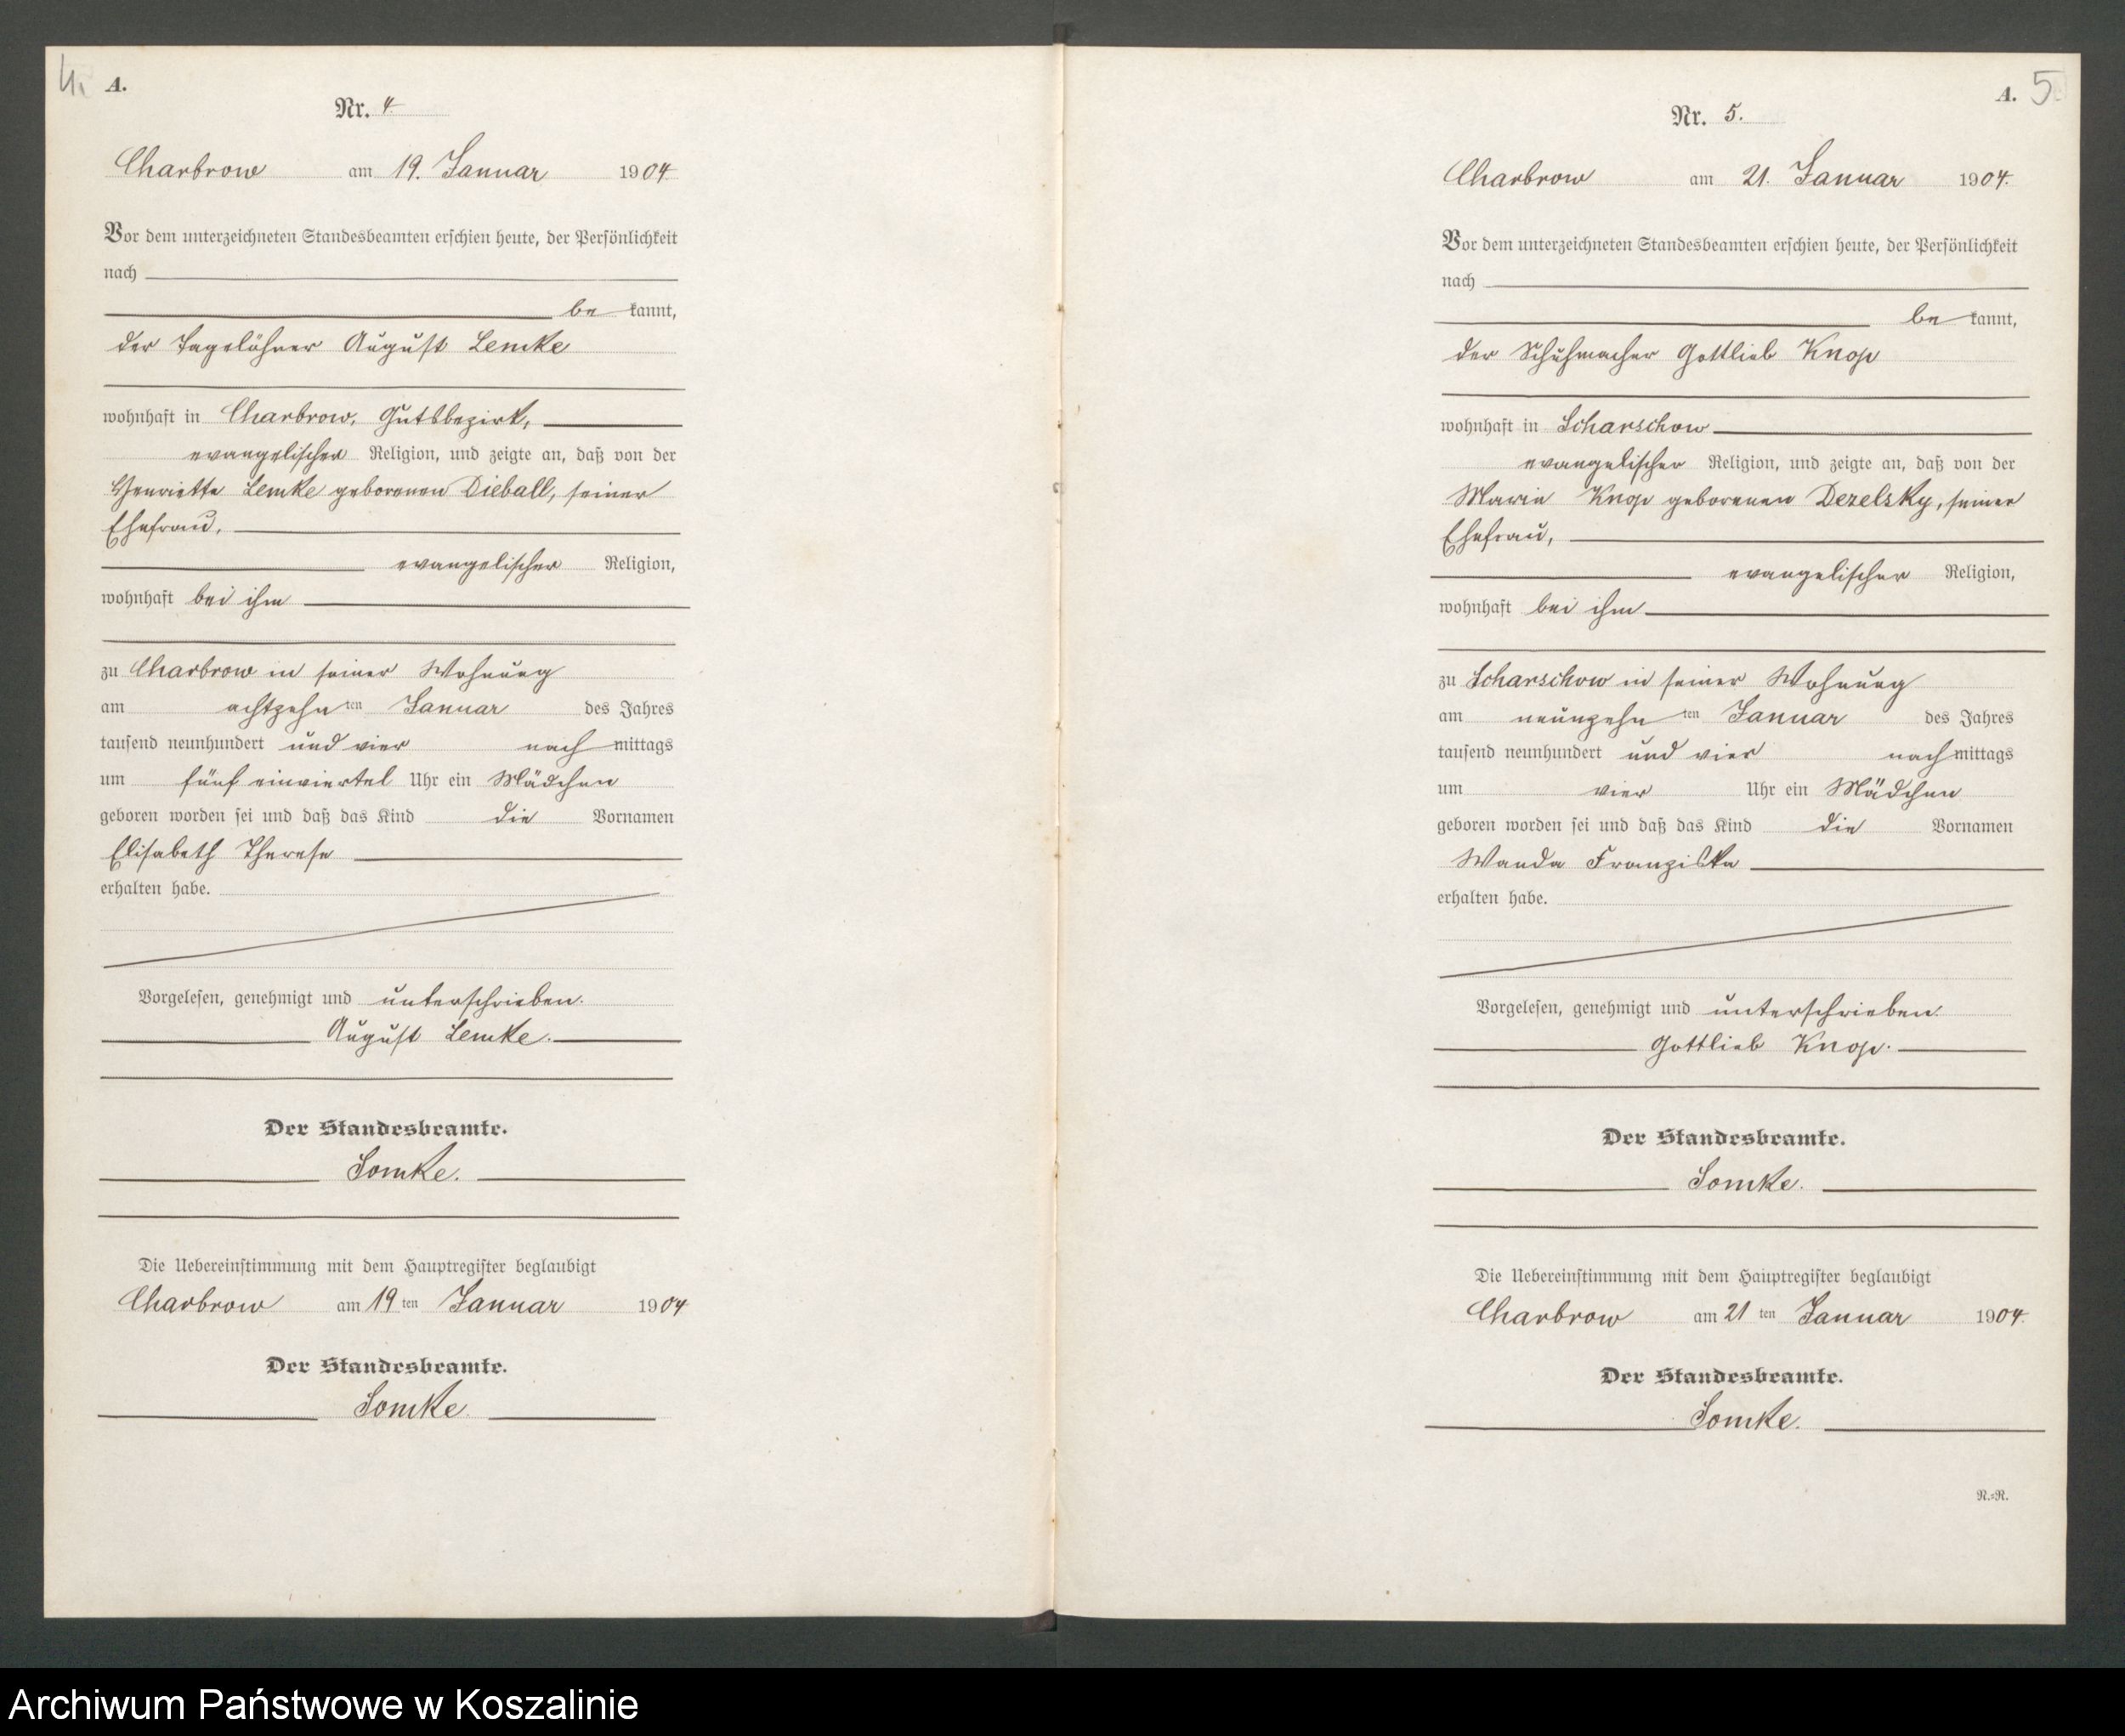 4.
A.
Nr. 4
Charbrow am 19. Januar 1904
Vor dem unterzeichneten Standesbeamten erschien heute, der Persönlichkeit
nach
be kannt,
der Tagelöhner August Lemke
wohnhaft in Charbrow, Gutsbezirk,
evangelischer Religion, und zeigte an, daß von der
Henriette Lemke geborenen Dieball, seiner
Ehefrau,
evangelischer Religion,
wohnhaft bei ihm
zu Charbrow in seiner Wohnung
am achtzehn ten Januar des Jahres
tausend neunhundert und vier nach mittags
um fünf einviertel Uhr ein Mädchen
geboren worden sei und daß das Kind die Vornamen
Elisabeth Therese
erhalten habe.
Vorgelesen, genehmigt und unterschrieben.
August Lemke.
Der Standesbeamte.
Somke.
Die Uebereinstimmung mit dem Hauptregister beglaubigt
Charbrow am 19 ten Januar 1904
Der Standesbeamte.
Somke.
A. 5.
Nr. 5.
Charbrow am 21. Januar 1904.
Vor dem unterzeichneten Standesbeamten erschien heute, der Persönlichkeit
nach
be kannt,
der Schuhmacher Gottlieb Knop
wohnhaft in Scharschow
evangelischer Religion, und zeigte an, daß von der
Marie Knop geborenen Dezelsky, seiner
Ehefrau,
evangelischer Religion,
wohnhaft bei ihm
zu Scharschow in seiner Wohnung
am neunzehn ten Januar des Jahres
tausend neunhundert und vier nach mittags
um vier Uhr ein Mädchen
geboren worden sei und daß das Kind die Vornamen
Wanda Franziska
erhalten habe.
Vorgelesen, genehmigt und unterschrieben.
Gottlieb Knop.
Der Standesbeamte.
Somke.
Die Uebereinstimmung mit dem Hauptregister beglaubigt
Charbrow am 21 ten Januar 1904.
Der Standesbeamte.
Somke.
R.=R.
Archiwum Państwowe w Koszalinie